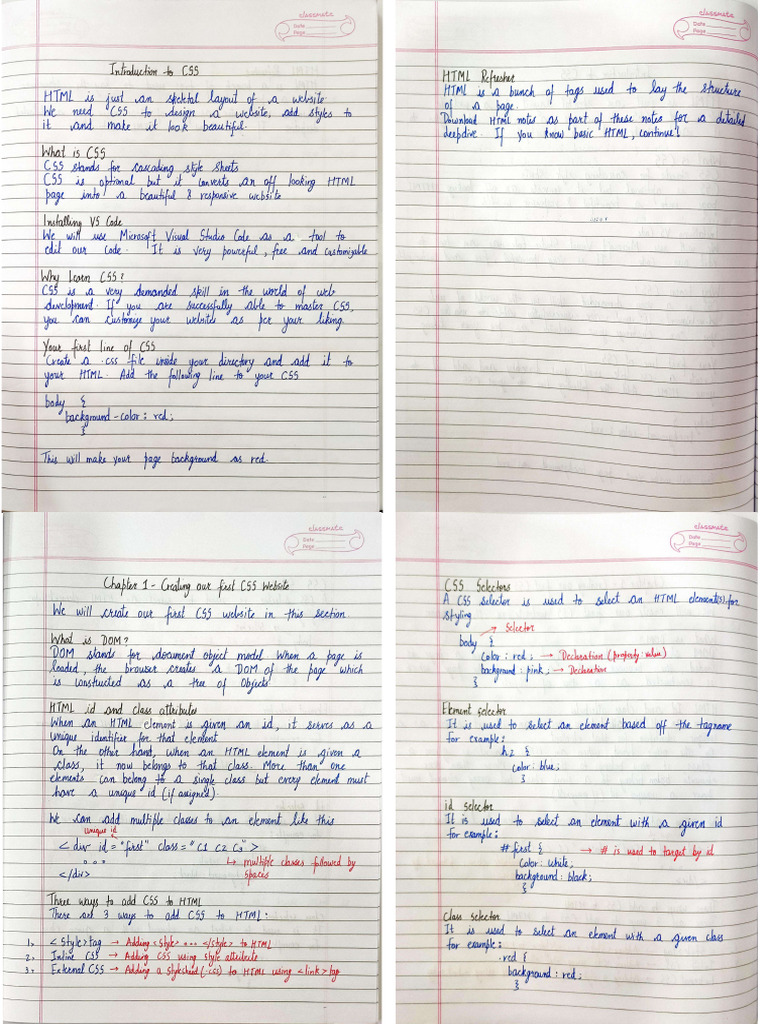 classmate
Date
Page
Introduction to CSS
HTML is just an skeletal layout of a website.
We need CSS to design a website, add styles to
it and make it look beautiful.
What is CSS
CSS stands for cascading style sheets
CSS is optional but it converts an off looking HTML
page into a beautiful & responsive website
Installing VS Code
We will use Microsoft Visual Studio Code as a tool to
edit our code. It is very powerful, free and customizable
Why Learn CSS?
CSS is a very demanded skill in the world of web
development. If you are successfully able to master CSS,
you can customize your website as per your liking.
Your first line of CSS
Create a .css file inside your directory and add it to
your HTML. Add the following line to your CSS
body {
background-color: red;
}
This will make your page background as red.
classmate
Date
Page
HTML Refresher
HTML is a bunch of tags used to lay the structure
of a page.
Download HTML notes as part of these notes for a detailed
deepdive. If you know basic HTML, continue!
classmate
Date
Page
Chapter 1 - Creating our first CSS Website
We will create our first CSS website in this section
What is DOM?
DOM stands for document object model. When a page is
loaded, the browser creates a DOM of the page which
is constructed as a tree of Objects
HTML id and class attributes
When an HTML element is given an id, it serves as a
unique identifier for that element.
On the other hand, when an HTML element is given a
class, it now belongs to that class. More than one
elements can belong to a single class but every element must
have a unique id (if assigned).
We can add multiple classes to an element like this
unique id
<div id="first" class="C1 C2 C3">
... ↳ multiple classes followed by
</div> spaces
Three ways to add CSS to HTML
There are 3 ways to add CSS to HTML:
1> <Style> tag → Adding <Style> ... </style> to HTML
2> Inline CSS → Adding CSS using style attribute
3> External CSS → Adding a stylesheet (.css) to HTML using <link> tag
classmate
Date
Page
CSS Selectors
A CSS selector is used to select an HTML element(s) for
styling
Selector
body {
color: red; → Declaration (property: value)
background: pink; → Declaration
}
Element selector
It is used to select an element based off the tagname
for example:
h2 {
color: blue;
}
id selector
It is used to select an element with a given id
for example:
#first { → # is used to target by id
color: white;
background: black;
}
Class selector
It is used to select an element with a given class
for example:
.red {
background: red;
}